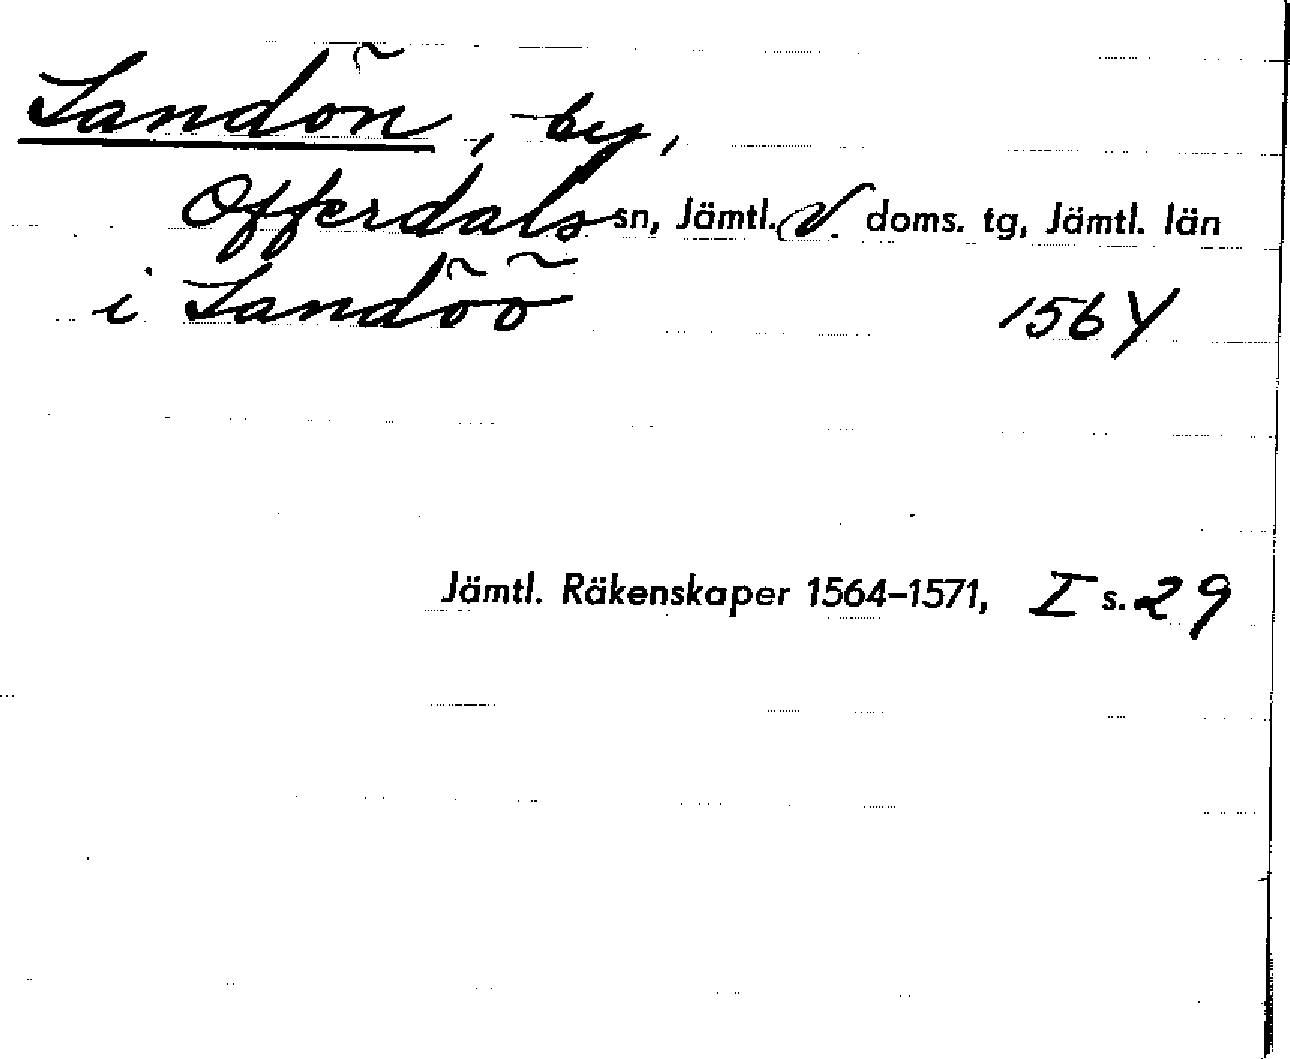 Landön, by,
Offerdals sn, Jämtl. V. doms. tg, Jämtl. län
i Landöö 1564
Jämtl. Räkenskaper 1564–1571, I s. 29